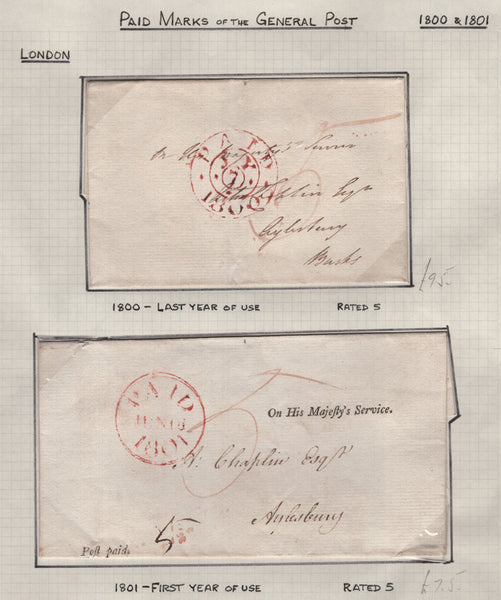 PAID MARKS OF THE GENERAL POST
1800 & 1801
LONDON
PAID
7
1800
On His Majesty's Service
Chaplin Esqr
Aylesbury
Bucks
£95.
1800 - LAST YEAR OF USE
RATED 5
PAID
JUN 16
1801
On His Majeſty's Service.
Chaplin Esqr
Aylesbury
Poſt paid.
5
1801 - FIRST YEAR OF USE
RATED 5
£75.